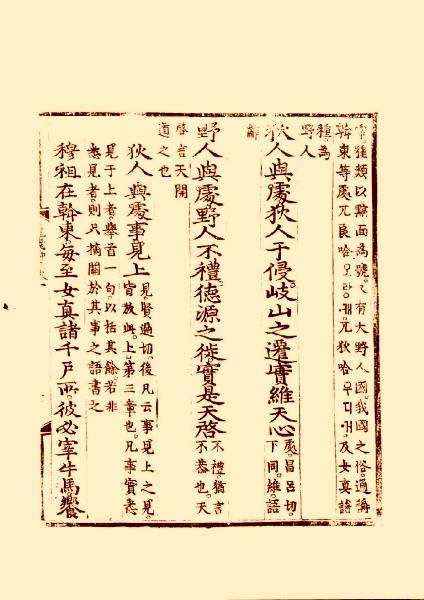 種類以黥面為號。又有大野人國。我國之俗。通稱
斡東等處兀良哈오랑캐。兀狄哈우디거。及女真諸
種為
野人
狄人與處狄人于侵。岐山之遷實維天心
處。昌呂切。
下同。維。語
辭
野人與處野人不禮。德源之徙實是天啓
不禮。猶言
不恭也。天
啓言天開
道之也
狄人與處事見上
見。賢遍切。後凡云事見上之見。
皆放此。上。第三章也。凡事實悉
見于上者。擧首一句。以括其餘。若非
悉見者。則只摘關於其事之語書之
穆祖在斡東。每至女真諸千戶所。彼必宰牛馬饗